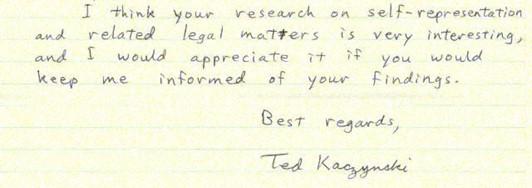 I think your research on self-representation
and related legal matters is very interesting,
and I would appreciate it if you would
keep me informed of your findings.
Best regards,
Ted Kaczynski